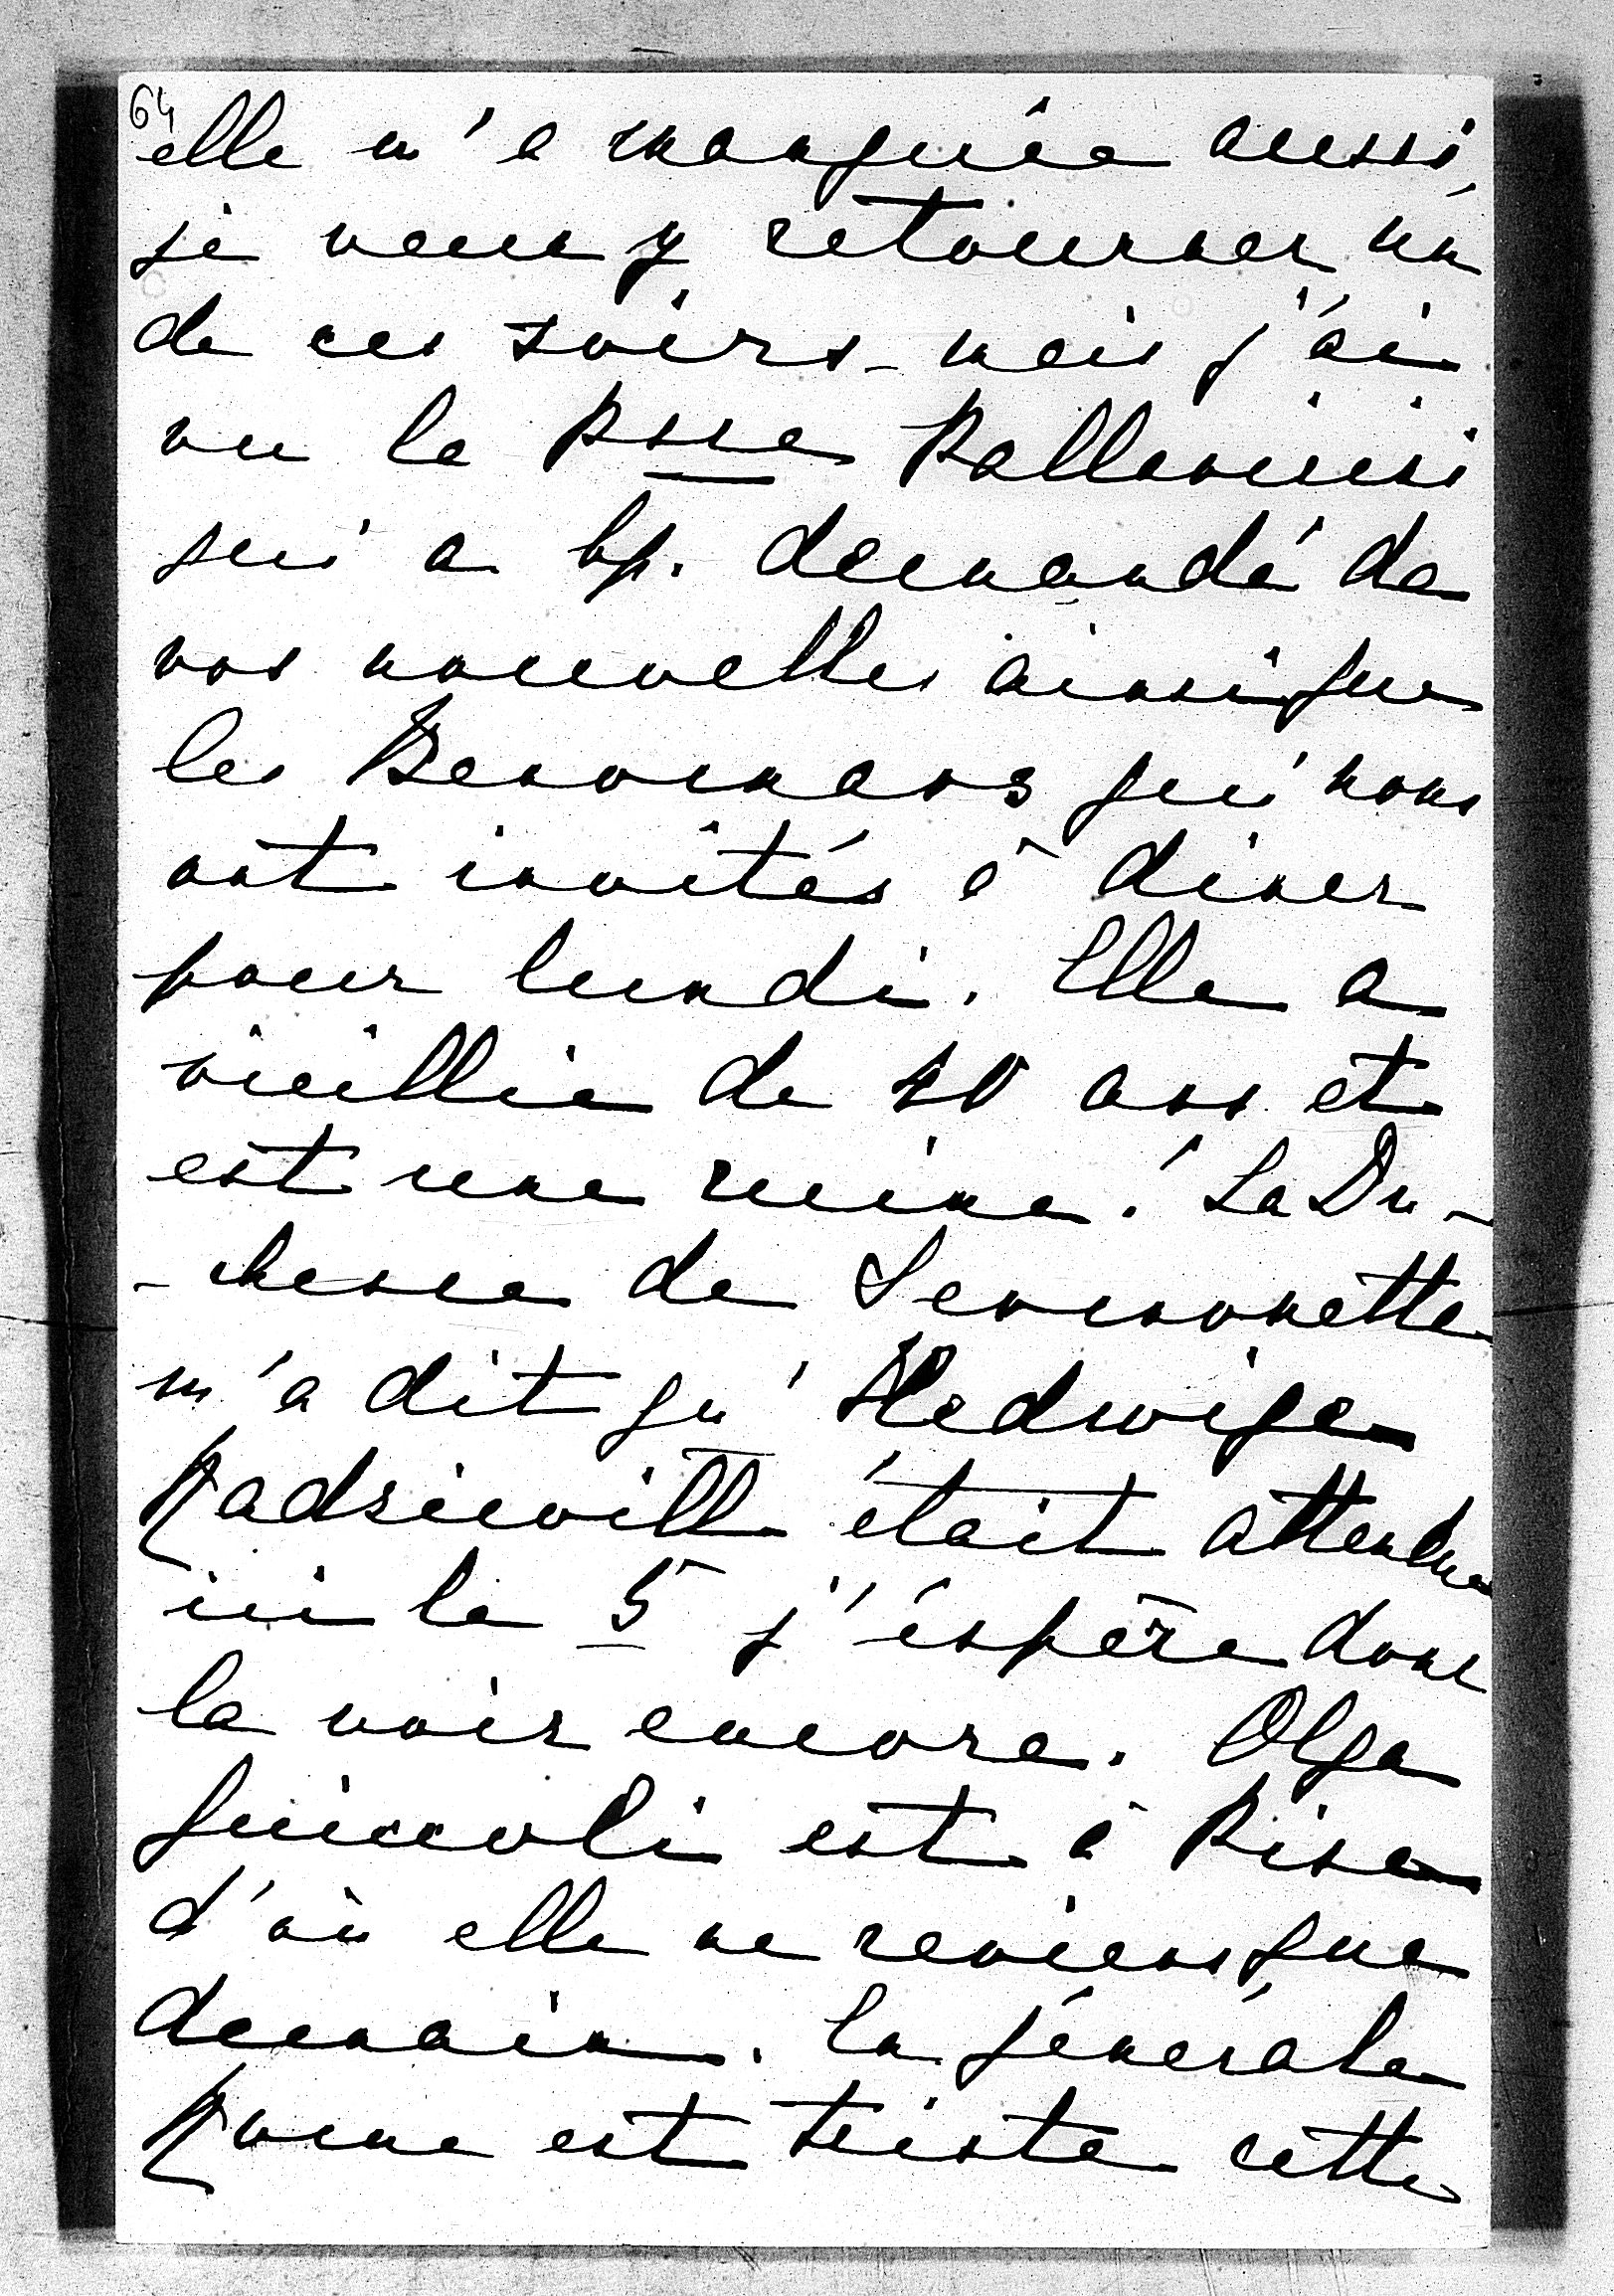 64
elle m'a manquée aussi,
je veux y retourner un
de ces soirs - mais j'ai
vu la Psse Pallavicini
qui a bp. demandé de
vos nouvelles ainsi que
les qui nous
ont invités à diner
pour lundi. Elle a
vieillie de 20 ans et
est une ruine! La Du-
-chesse de Sermonette
m'a dit qu'Hedwige
Radziwill était attendue
ici le 5 j'éspère donc
la voir encore. Olga
Guiccoli est à Pise
d'où elle ne reviens que
demain. En général
Rome est triste cette